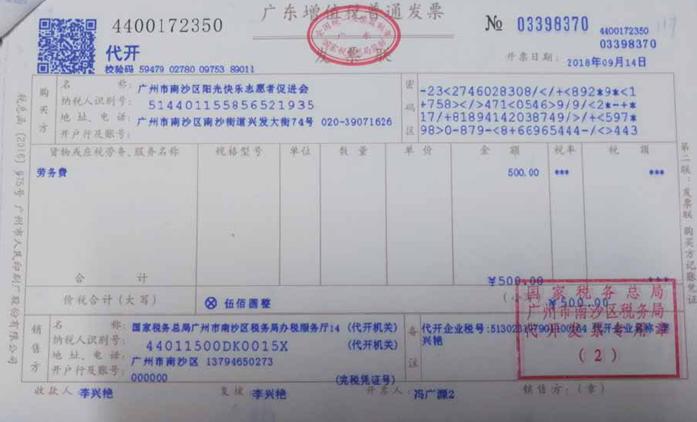 4400172350
广东增值税普通发票
№ 03398370
4400172350
03398370
代开
发票联
校验码 59479 02780 09753 89011
开票日期: 2018年09月14日
购买方
名称: 广州市南沙区阳光快乐志愿者促进会
纳税人识别号: 514401155856521935
地址、电话: 广州市南沙区南沙街道兴发大街74号 020-39071626
开户行及账号:
密码区
-23<2746028308/</+<892*9*<1
+758></>471<0546>9/9/<2*-+*
17/+81894142038749/>/+<597*
98>0-879-<8+66965444-/<>443
货物或应税劳务、服务名称 规格型号 单位 数量 单价 金额 税率 税额
劳务费 500.00 *** ***
合计 ¥500.00 ***
价税合计(大写) ⊗ 伍佰圆整 (小写) ¥500.00
销售方
名称: 国家税务总局广州市南沙区税务局办税服务厅14 (代开机关)
纳税人识别号: 44011500DK0015X (代开机关)
地址、电话: 广州市南沙区 13794650273
开户行及账号: 000000 (完税凭证号)
备注
代开企业税号: 代开企业名称: 李兴艳
国家税务总局
广州市南沙区税务局
代开发票专用章
(2)
收款人: 李兴艳 复核: 李兴艳 开票人: 冯广源2 销售方: (章)
第二联: 发票联 购买方记账凭证